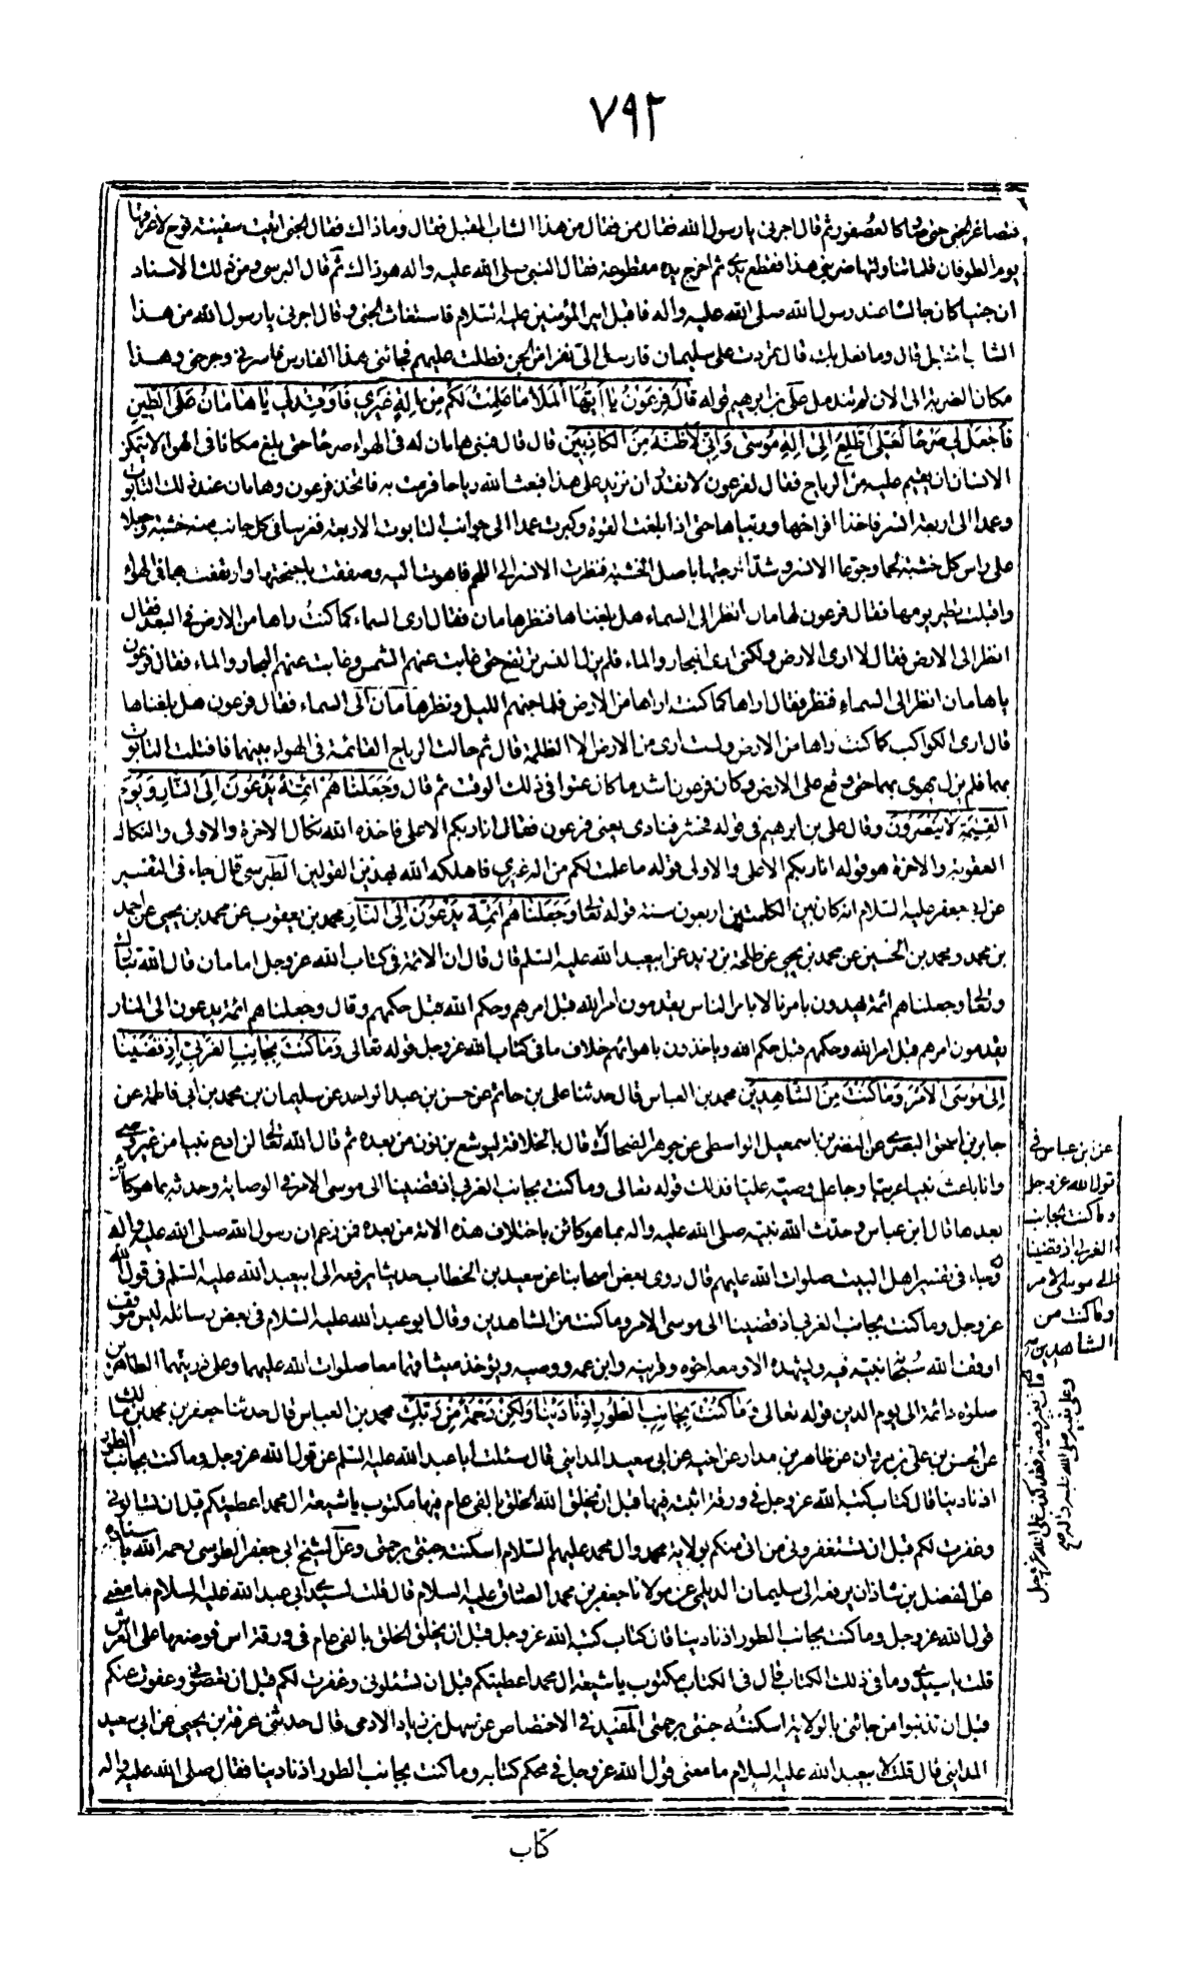 ٧٩٢
فتصاغر الجنى حتى صار كالعصفور ثم قال اجرنى يا رسول الله فقال ممن فقال من هذا الشاب المقبل فقال وما ذاك فقال الجنى اتيت سفينة نوح لاغرقها
يوم الطوفان فلما تناولتها ضربنى هذا فقطع يدى ثم اخرج يده مقطوعة فقال النبى صلى الله عليه واله هو ذاك ثم قال البرسى ومن ذلك الاسناد
ان جنيا كان جالسا عند رسول الله صلى الله عليه واله فاقبل امير المؤمنين عليه السلام فاستغاث الجنى و قال اجرنى يا رسول الله من هذا
الشاب المقبل قال وما فعل بك قال تمردت على سليمان فارسل الى نفرا من الجن فطلت عليهم فجائنى هذا الفارس فاسرنى وجرحنى وهذا
مكان الضربة الى الان لم تندمل على بن ابرهيم قوله قَالَ فِرْعَوْنُ يَا اَيُّهَا الْمَلَأُ مَا عَلِمْتُ لَكُمْ مِنْ اِلٰهٍ غَيْرِي فَاَوْقِدْ لِي يَا هَامَانُ عَلَى الطِّينِ
فَاجْعَلْ لِي صَرْحًا لَعَلِّي اَطَّلِعُ اِلَى اِلٰهِ مُوسَى وَاِنِّي لَاَظُنُّهُ مِنَ الْكَاذِبِينَ قال قال فبنى هامان له فى الهواء صرحا حتى بلغ مكانا فى الهواء لا يتمكن
الانسان ان يقيم عليه من الرياح فقال لفرعون لا نقدر ان نزيد على هذا فبعث الله رياحا فرمت به فاتخذ فرعون وهامان عند ذلك التابوت
وعمدا الى اربعة انسر فاخذا افراخها و ربياها حتى اذا بلغت القوة وكبرت عمدا الى جوانب التابوت الاربعة فغرسا فى كل جانب منه خشبة وجعلا
على راس كل خشبة لحما وجوعا الانسر وشدا ارجلها باصل الخشبة فنظرت الانسر الى اللحم فاهوت اليه وصفقت باجنحتها وارتفعت بهما فى الهواء
واقبلت تطير يومها فقال فرعون لهامان انظر الى السماء هل بلغناها فنظر هامان فقال ارى السماء كما كنت اراها من الارض فى البعد فقال
انظر الى الارض فقال لا ارى الارض ولكنى ارى البحار والماء فلم يزل النسر يرتفع حتى غابت عنهم الشمس وغابت عنهم البحار والماء فقال فرعون
يا هامان انظر الى السماء فنظر فقال اراها كما كنت اراها من الارض فلما جنهم الليل و نظر هامان الى السماء فقال فرعون هل بلغناها
قال ارى الكواكب كما كنت اراها من الارض ولست ارى من الارض الا الظلمة قال ثم حالت الرياح القائمة فى الهواء بينهما فاقبلت التابوت
بهما فلم يزل يهوى بهما حتى وقع على الارض وكان فرعون اشد ما كان عتوا فى ذلك الوقت ثم قال وَجَعَلْنَاهُمْ اَئِمَّةً يَدْعُونَ اِلَى النَّارِ وَيَوْمَ
الْقِيٰمَةِ لَا يُنْصَرُونَ وقال على بن ابرهيم فى قوله فحشر فنادى يعنى فرعون فقال انا ربكم الاعلى فاخذه الله نكال الاخرة والاولى والنكال
العقوبة والاخرة هو قوله انا ربكم الاعلى والاولى قوله ما علمت لكم من اله غيرى فاهلكه الله بهذين القولين الطبرسى قال جاء فى التفسير
عن ابى جعفر عليه السلام انه كان بين الكلمتين اربعون سنة قوله تعالى وَجَعَلْنَاهُمْ اَئِمَّةً يَدْعُونَ اِلَى النَّارِ محمد بن يعقوب عن محمد بن يحيى عن احمد
بن محمد و محمد بن الحسين عن محمد بن يحيى عن طلحة بن زيد عن ابى عبد الله عليه السلم قال قال ان الائمة فى كتاب الله عز وجل امامان قال الله تبارك
وتعالى وجعلناهم ائمة يهدون بامرنا لا بامر الناس يقدمون امر الله قبل امرهم وحكم الله قبل حكمهم وقال وجعلناهم ائمة يدعون الى النار
يقدمون امرهم قبل امر الله وحكمهم قبل حكم الله وياخذون باهوائهم خلاف ما فى كتاب الله عز وجل قوله تعالى وَمَا كُنْتَ بِجَانِبِ الْغَرْبِيِّ اِذْ قَضَيْنَا
اِلَى مُوسَى الْاَمْرَ وَمَا كُنْتَ مِنَ الشَّاهِدِينَ محمد بن العباس قال حدثنا على بن حاتم عن حسن بن عبد الواحد عن سليمان بن محمد بن ابى فاطمة عن
جابر بن اسحق البصرى عن النضر بن اسمعيل الواسطى عن جوهر الضحاك قال بالخلافة ليوشع بن نون من بعده ثم قال الله تعالى لن ادع نبيا من غير وصى
وانا باعث نبيا عربيا وجاعل وصيه عليا فذلك قوله تعالى وما كنت بجانب الغربى اذ قضينا الى موسى الامر فى الوصاية وحدثه بما هو كائن
بعده قال ابن عباس وحدث الله نبيه صلى الله عليه واله بما هو كائن باختلاف هذه الامة من بعده فمن زعم ان رسول الله صلى الله عليه واله
وجاء فى تفسير اهل البيت صلوات الله عليهم قال روى بعض اصحابنا عن سعيد بن الخطاب حديثا يرفعه الى ابى عبد الله عليه السلم فى قول الله
عز وجل وما كنت بجانب الغربى اذ قضينا الى موسى الامر وما كنت من الشاهدين وقال ابو عبد الله عليه السلام فى بعض رسائله ليس موقف
اوقف الله سبحانه نبيه فيه ويشهده الا و معه اخوه و قرينه وابن عمه ووصيه ويؤخذ ميثاقهما معا صلوات الله عليهما وعلى ذريتهما الطاهرين
صلوة دائمة الى يوم الدين قوله تعالى وَمَا كُنْتَ بِجَانِبِ الطُّورِ اِذْ نَادَيْنَا وَلٰكِنْ رَحْمَةً مِنْ رَبِّكَ محمد بن العباس قال حدثنا جعفر بن محمد بن مالك
عن الحسن بن على بن مروان عن طاهر بن مدرار عن اخيه عن ابى سعيد المداينى قال سئلت ابا عبد الله عليه السلم عن قول الله عز وجل وما كنت بجانب الطور
اذ نادينا قال كتاب كتبه الله عز وجل فى ورقة اثبته فيها قبل ان يخلق الله الخلق بالفى عام فيها مكتوب يا شيعة ال محمد اعطيتكم قبل ان تسالونى
وغفرت لكم قبل ان تستغفرونى من اتى منكم بولاية محمد وال محمد عليهم السلام اسكنته جنتى برحمتى وعن الشيخ ابى جعفر الطوسى رحمه الله باسناده
عن الفضل بن شاذان يرفعه الى سليمان الديلمى عن مولانا جعفر بن محمد الصادق عليه السلام قال قلت لسيدى ابى عبد الله عليه السلام ما معنى
قول الله عز وجل وما كنت بجانب الطور اذ نادينا قال كتاب كتبه الله عز وجل قبل ان يخلق الخلق بالفى عام فى ورقة اس فوضعها على العرش
قلت يا سيدى وما فى ذلك الكتاب قال فى الكتاب مكتوب يا شيعة ال محمد اعطيتكم قبل ان تسئلونى وغفرت لكم قبل ان تعصونى وعفوت عنكم
قبل ان تذنبوا من جائنى بالولاية اسكنته جنتى برحمتى المفيد فى الاختصاص عن سهل بن زياد الادمى قال حدثنى عرفة بن يحيى عن ابى سعيد
المداينى قال قلت لابى عبد الله عليه السلام ما معنى قول الله عز وجل فى محكم كتابه وما كنت بجانب الطور اذ نادينا فقال صلى الله عليه واله
عن ابن عباس فى
قول الله عز وجل
وما كنت بجانب
الغربى اذ قضينا
الى موسى الامر
وما كنت من
الشاهدين
قال بغير وصية فقد كذب على الله عز وجل
وعلى نبيه صلى الله عليه واله
كتاب